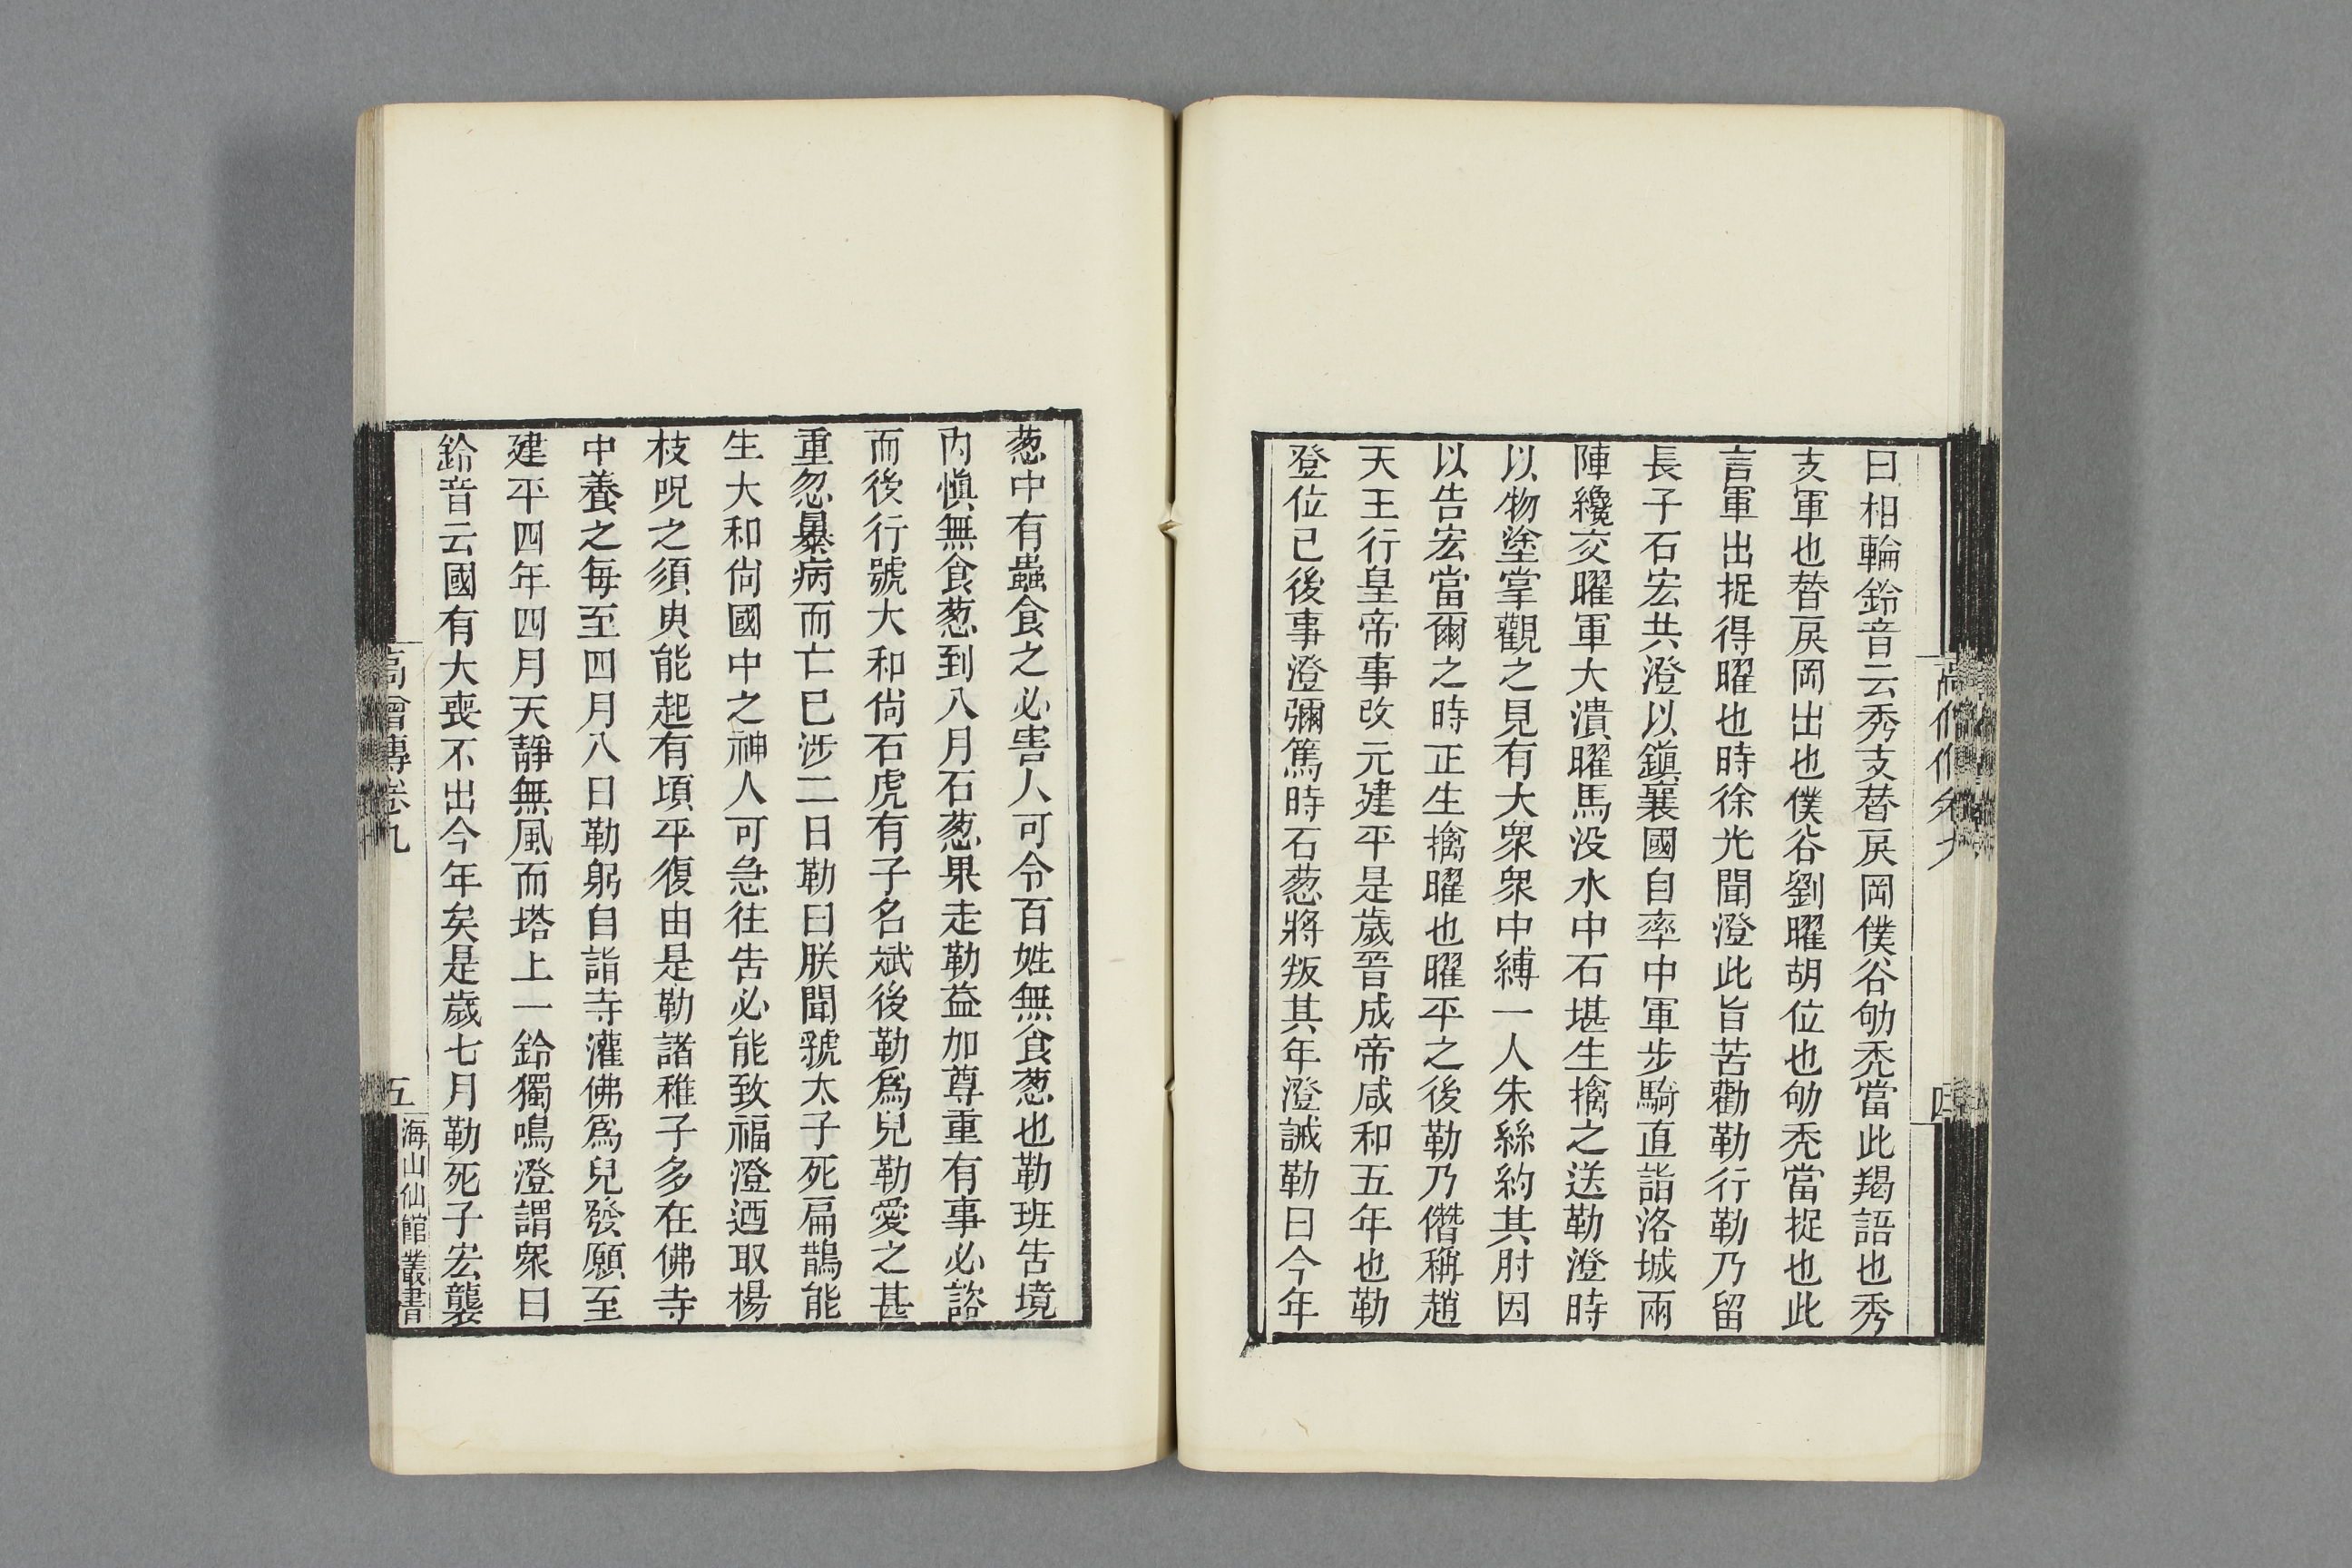 曰相輪鈴音云秀支替戾岡僕谷劬禿當此羯語也秀
支軍也替戾岡出也僕谷劉曜胡位也劬禿當捉也此
言軍出捉得曜也時徐光聞澄此旨苦勸勒行勒乃留
長子石宏共澄以鎭襄國自率中軍步騎直詣洛城兩
陣纔交曜軍大潰曜馬没水中石堪生擒之送勒澄時
以物塗掌觀之見有大衆衆中縛一人朱絲約其肘因
以告宏當爾之時正生擒曜也曜平之後勒乃僭稱趙
天王行皇帝事改元建平是歲晉成帝咸和五年也勒
登位已後事澄彌篤時石葱將叛其年澄誡勒曰今年
葱中有蟲食之必害人可令百姓無食葱也勒班告境
內愼無食葱到八月石葱果走勒益加尊重有事必諮
而後行號大和尙石虎有子名斌後勒爲兒勒愛之甚
重忽暴病而亡已涉二日勒曰朕聞虢太子死扁鵲能
生大和尙國中之神人可急往告必能致福澄迺取楊
枝呪之須臾能起有頃平復由是勒諸稚子多在佛寺
中養之每至四月八日勒躬自詣寺灌佛爲兒發願至
建平四年四月天靜無風而塔上一鈴獨鳴澄謂衆曰
鈴音云國有大喪不出今年矣是歲七月勒死子宏襲
高僧傳卷九
五
海山仙館叢書